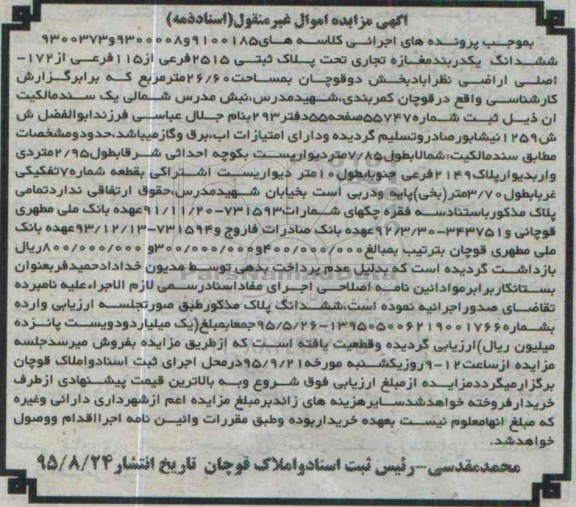 آگهی مزایده اموال غیرمنقول(اسنادذمه)
بموجب پرونده های اجرائی کلاسه های۹۱۰۰۱۸۵و۹۳۰۰۰۰۸و۹۳۰۰۳۷۳
ششدانگ یکدربندمغازه تجاری تحت پلاک ثبتی ۲۵۱۵فرعی از۱۱۵فرعی از۱۷۲-
اصلی اراضی نظرابادبخش دوقوچان بمساحت۲۶/۶۰مترمربع که برابرگزارش
کارشناسی واقع درقوچان کمربندی،شهیدمدرس،نبش مدرس شمالی یک سندمالکیت
ان ذیل ثبت شماره۵۵۷۴۷صفحه۵۵دفتر۲۹۳بنام جلال عباسی فرزندابوالفضل ش
ش۱۲۵۹نیشابورصادروتسلیم گردیده ودارای امتیازات اب،برق وگازمیباشد،حدودومشخصات
مطابق سندمالکیت:شمالابطول۷/۸۵متردیواریست بکوچه احداثی شرقابطول۲/۹۵متردی
واربدیوارپلاک۲۱۴۹فرعی جنوبابطول۱۰متر دیواریست اشتراکی بقطعه شماره۷تفکیکی
غربابطول۳/۷۰متر(پخی)پایه ودربی است بخیابان شهیدمدرس،حقوق ارتفاقی نداردتمامی
پلاک مذکورباستنادسه فقره چکهای شمارات۷۳۱۵۹۳-۹۱/۱۱/۲۰عهده بانک ملی مطهری
قوچانی و۳۴۳۷۵۱-۹۲/۳/۳۰عهده بانک صادرات فاروج و۷۳۱۵۹۴-۹۳/۱۲/۱۳عهده بانک
ملی مطهری قوچان بترتیب بمبالغ۴۰۰/۰۰۰/۰۰۰و۳۰۰/۰۰۰/۰۰۰و ۸۰۰/۰۰۰/۰۰۰ریال
بازداشت گردیده است که بدلیل عدم پرداخت بدهی توسط مدیون خدادادحمیدفربعنوان
بستانکاربرابرموادائین نامه اصلاحی اجرای مفاداسنادرسمی لازم الاجراءعلیه نامبرده
تقاضای صدوراجرائیه نموده است،ششدانگ پلاک مذکورطبق صورتجلسه ارزیابی وارده
بشماره۱۳۹۵۰۵۰۰۶۲۱۹۰۰۱۷۶۶-۹۵/۵/۲۶جمعابمبلغ(یک میلیاردودویست پانزده
میلیون ریال)ارزیابی گردیده وقطعیت یافته است که ازطریق مزایده بفروش میرسدجلسه
مزایده ازساعت۱۲-۹روزیکشنبه مورخه۹۵/۹/۲۱درمحل اجرای ثبت اسنادواملاک قوچان
برگزارمیگرددمزایده ازمبلغ ارزیابی فوق شروع وبه بالاترین قیمت پیشنهادی ازطرف
خریدارفروخته خواهدشدسایرهزینه های زائدبرمبلغ مزایده اعم ازشهرداری دارائی وغیره
که مبلغ انهامعلوم نیست بعهده خریداربوده وطبق مقررات وائین نامه اجرااقدام ووصول
خواهدشد.
محمدمقدسی-رئیس ثبت اسنادواملاک قوچان تاریخ انتشار۹۵/۸/۲۴